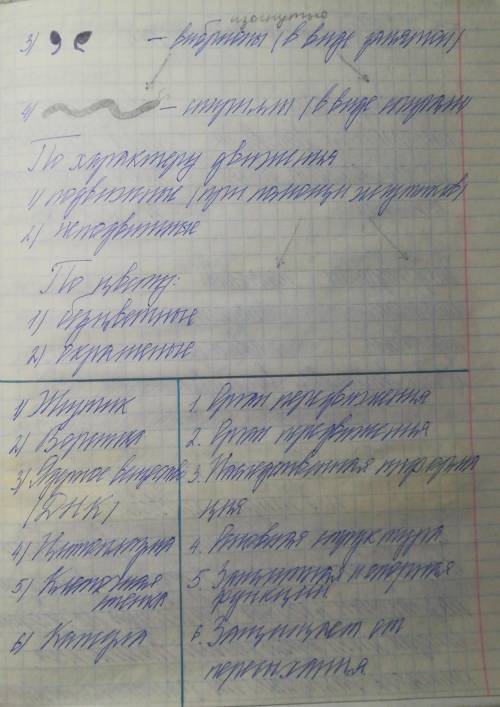 изогнутые
3) – вибрионы (в виде запятой)
4) – спириллы (в виде спирали
По характеру движения
1) подвижные (при помощи жгутиков)
2) неподвижные
По цвету:
1) безцветные
2) окрашеные
1) Жгутик
1. Орган передвижения
2) Ворсинка
2. Орган передвижения
3) Ядерное вещество
(ДНК)
3. Наследственная информа
ция
4) Цитоплазма
4. Основная структура
5) Клеточная
стенка
5. Защитная и опорная
функции
6) Капсула
6. Защищает от
пересыхания